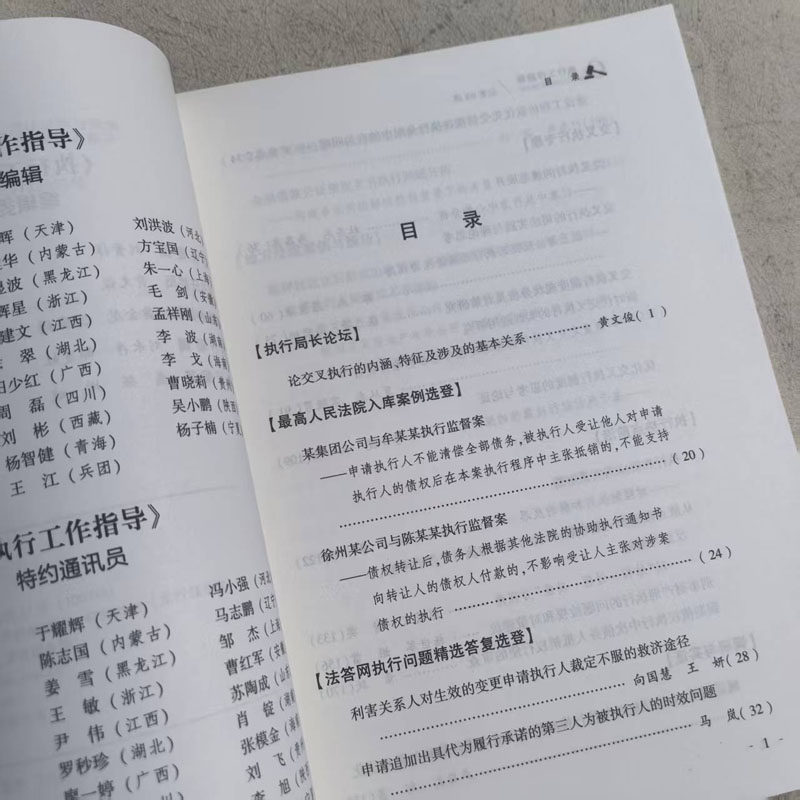 作指导》
编辑
辉（天津）
刘洪波（河北
华（内蒙古）
方宝国（辽宁
波（黑龙江）
朱一心（上海
辉星（浙江）
毛 剑（安徽
建文（江西）
孟祥刚（山东
翠（湖北）
李 波（湖南
少红（广西）
李 戈（海南
周 磊（四川）
曹晓莉（贵州
刘 彬（西藏）
吴小鹏（陕西
杨智健（青海）
杨子楠（宁夏
王 江（兵团）
执行工作指导》
特约通讯员
于耀辉（天津）
冯小强（河北
陈志国（内蒙古）
马志鹏（辽宁
姜 雪（黑龙江）
邹 杰（上海
王 敏（浙江）
曹红军（安徽
尹 伟（江西）
苏陶成（山东
罗秒珍（湖北）
肖 锭（湖南
廖一婷（广西）
张模金（海南
刘 飞（贵州
李 旭（陕西
目 录
目 录
【执行局长论坛】
论交叉执行的内涵、特征及涉及的基本关系 ……………… 黄文俊（ 1 ）
【最高人民法院入库案例选登】
某集团公司与牟某某执行监督案
——申请执行人不能清偿全部债务，被执行人受让他人对申请
执行人的债权后在本案执行程序中主张抵销的，不能支持
……………………………………………………………（ 20 ）
徐州某公司与陈某某执行监督案
——债权转让后，债务人根据其他法院的协助执行通知书
向转让人的债权人付款的，不影响受让人主张对涉案
债权的执行 ……………………………………………（ 24 ）
【法答网执行问题精选答复选登】
利害关系人对生效的变更申请执行人裁定不服的救济途径
………………………………………… 向国慧 王 妍（ 28 ）
申请追加出具代为履行承诺的第三人为被执行人的时效问题
……………………………………………………… 马 岚（ 32 ）
- 1 -